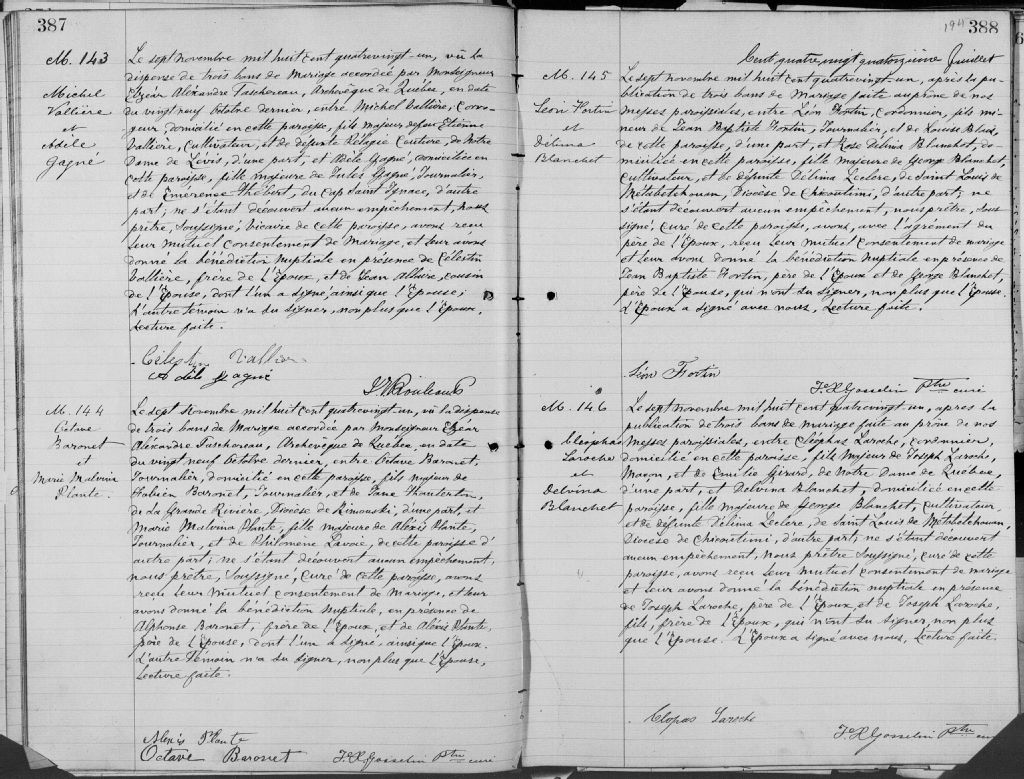 387
M. 143
Michel
Vallière
et
Adèle
Gagné
Le sept novembre mil huit cent quatrevingt un, vû la
dispense de trois bans de Mariage accordée par Monseigneur
Elzéar Alexandre Taschereau, Archevêque de Québec, en date
du vingt neuf Octobre dernier, entre Michel Vallière, voya-
geur, domicilié en cette paroisse, fils majeur de feu Etienne
Vallière, Cultivateur, et de défunte Pélagie Couture, de Notre
Dame de Lévis, d'une part, et Adèle Gagné, domiciliée en
cette paroisse, fille majeure de Jules Gagné, Journalier,
et de Émérence Thibert, du Cap Saint Ignace, d'autre
part; ne s'étant découvert aucun empêchement, Nous
prêtre, Soussigné, vicaire de cette paroisse, avons reçu
leur mutuel consentement de Mariage, et leur avons
donné la bénédiction Nuptiale en présence de Célestin
Vallière, frère de l'Epoux, et de Jean Allaire, cousin
de l'Epouse, dont l'un a signé ainsi que l'Epouse;
L'autre témoin n'a su signer, non plus que l'Epoux.
Lecture faite.
Célestin Vallier
Adèle Gagné
M. 144
Octave
Baronet
et
Marie Malvina
Plante.
Le sept Novembre mil huit cent quatrevingt un, vû la dispense
de trois bans de Mariage accordée par Monseigneur Elzéar
Alexandre Taschereau, Archevêque de Québec, en date
du vingt neuf Octobre dernier, entre Octave Baronet,
Journalier, domicilié en cette paroisse, fils majeur de
Fabien Baronet, Journalier, et de Jane
de la Grande Rivière, Diocèse de Rimouski, d'une part, et
Marie Malvina Plante, fille majeure de Alexis Plante,
Journalier, et de Philomène Lavoie, de cette paroisse d'
autre part; ne s'étant découvert aucun empêchement,
nous prêtre, Soussigné, curé de cette paroisse, avons
reçu leur mutuel consentement de Mariage, et leur
avons donné la bénédiction Nuptiale, en présence de
Alphonse Baronet, frère de l'Epoux, et de Alexis Plante
père de l'Epouse, dont l'un a signé, ainsi que l'Epoux.
L'autre témoin n'a su signer, non plus que l'Epouse,
Lecture faite.
Alexis Plante
Octave Baronet
F. X. Gosselin Ptre curé
194
388
Cent quatre vingt quatorzième Juillet
M. 145
Léon Fortin
et
Délima
Blanchet
Le sept novembre mil huit cent quatrevingt un, après la pu-
blication de trois bans de Mariage faite au prône de nos
Messes paroissiales, entre Léon Fortin, Cordonnier, fils mi-
neur de Jean Baptiste Fortin, Journalier, et de Louise Blais,
de cette paroisse, d'une part, et Rose Délima Blanchet, do-
miciliée en cette paroisse, fille majeure de George Blanchet,
cultivateur, et de défunte Délima Leclerc, de Saint Louis de
Métabetchouan, Diocèse de Chicoutimi, d'autre part; ne
s'étant découvert aucun empêchement, nous prêtre, sous
signé, curé de cette paroisse, avons, avec l'agrément du
père de l'Epoux, reçu leur mutuel consentement de mariage
et leur avons donné la bénédiction Nuptiale en présence de
Jean Baptiste Fortin, père de l'Epoux et de George Blanchet,
père de l'Epouse, qui n'ont su signer, non plus que l'Epouse.
L'Epoux a signé avec nous, Lecture faite.
Léon Fortin
F. X. Gosselin Ptre curé
M. 146
Cléophas
Laroche
et
Delvina
Blanchet
Le sept novembre mil huit cent quatrevingt un, après la
publication de trois bans de mariage faite au prône de nos
Messes paroissiales, entre Cléophas Laroche, cordonnier,
domicilié en cette paroisse, fils Majeur de Joseph Laroche,
Maçon, et de Emilie Girard, de Notre Dame de Québec,
d'une part, et Delvina Blanchet, domiciliée en cette
paroisse, fille majeure de George Blanchet, cultivateur,
et de défunte Délima Leclerc, de Saint Louis de Métabetchouan,
Diocèse de Chicoutimi, d'autre part; ne s'étant découvert
aucun empêchement, Nous prêtre Soussigné, curé de cette
paroisse, avons reçu leur mutuel consentement de mariage
et leur avons donné la bénédiction nuptiale en présence
de Joseph Laroche, père de l'Epoux, et de Joseph Laroche,
fils, frère de l'Epoux, qui n'ont su signer, non plus
que l'Epouse. L'Epoux a signé avec nous, Lecture faite.
Clopas Laroche
F. X. Gosselin Ptre curé